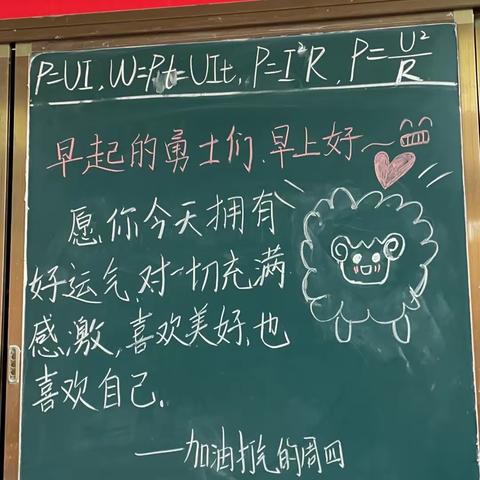 P=UI, W=Pt=UIt, P=I²R, P=U²/R
早起的勇士们、早上好~
愿你今天拥有
好运气、对一切充满
感激,喜欢美好、也
喜欢自己.
——加油打气的周四